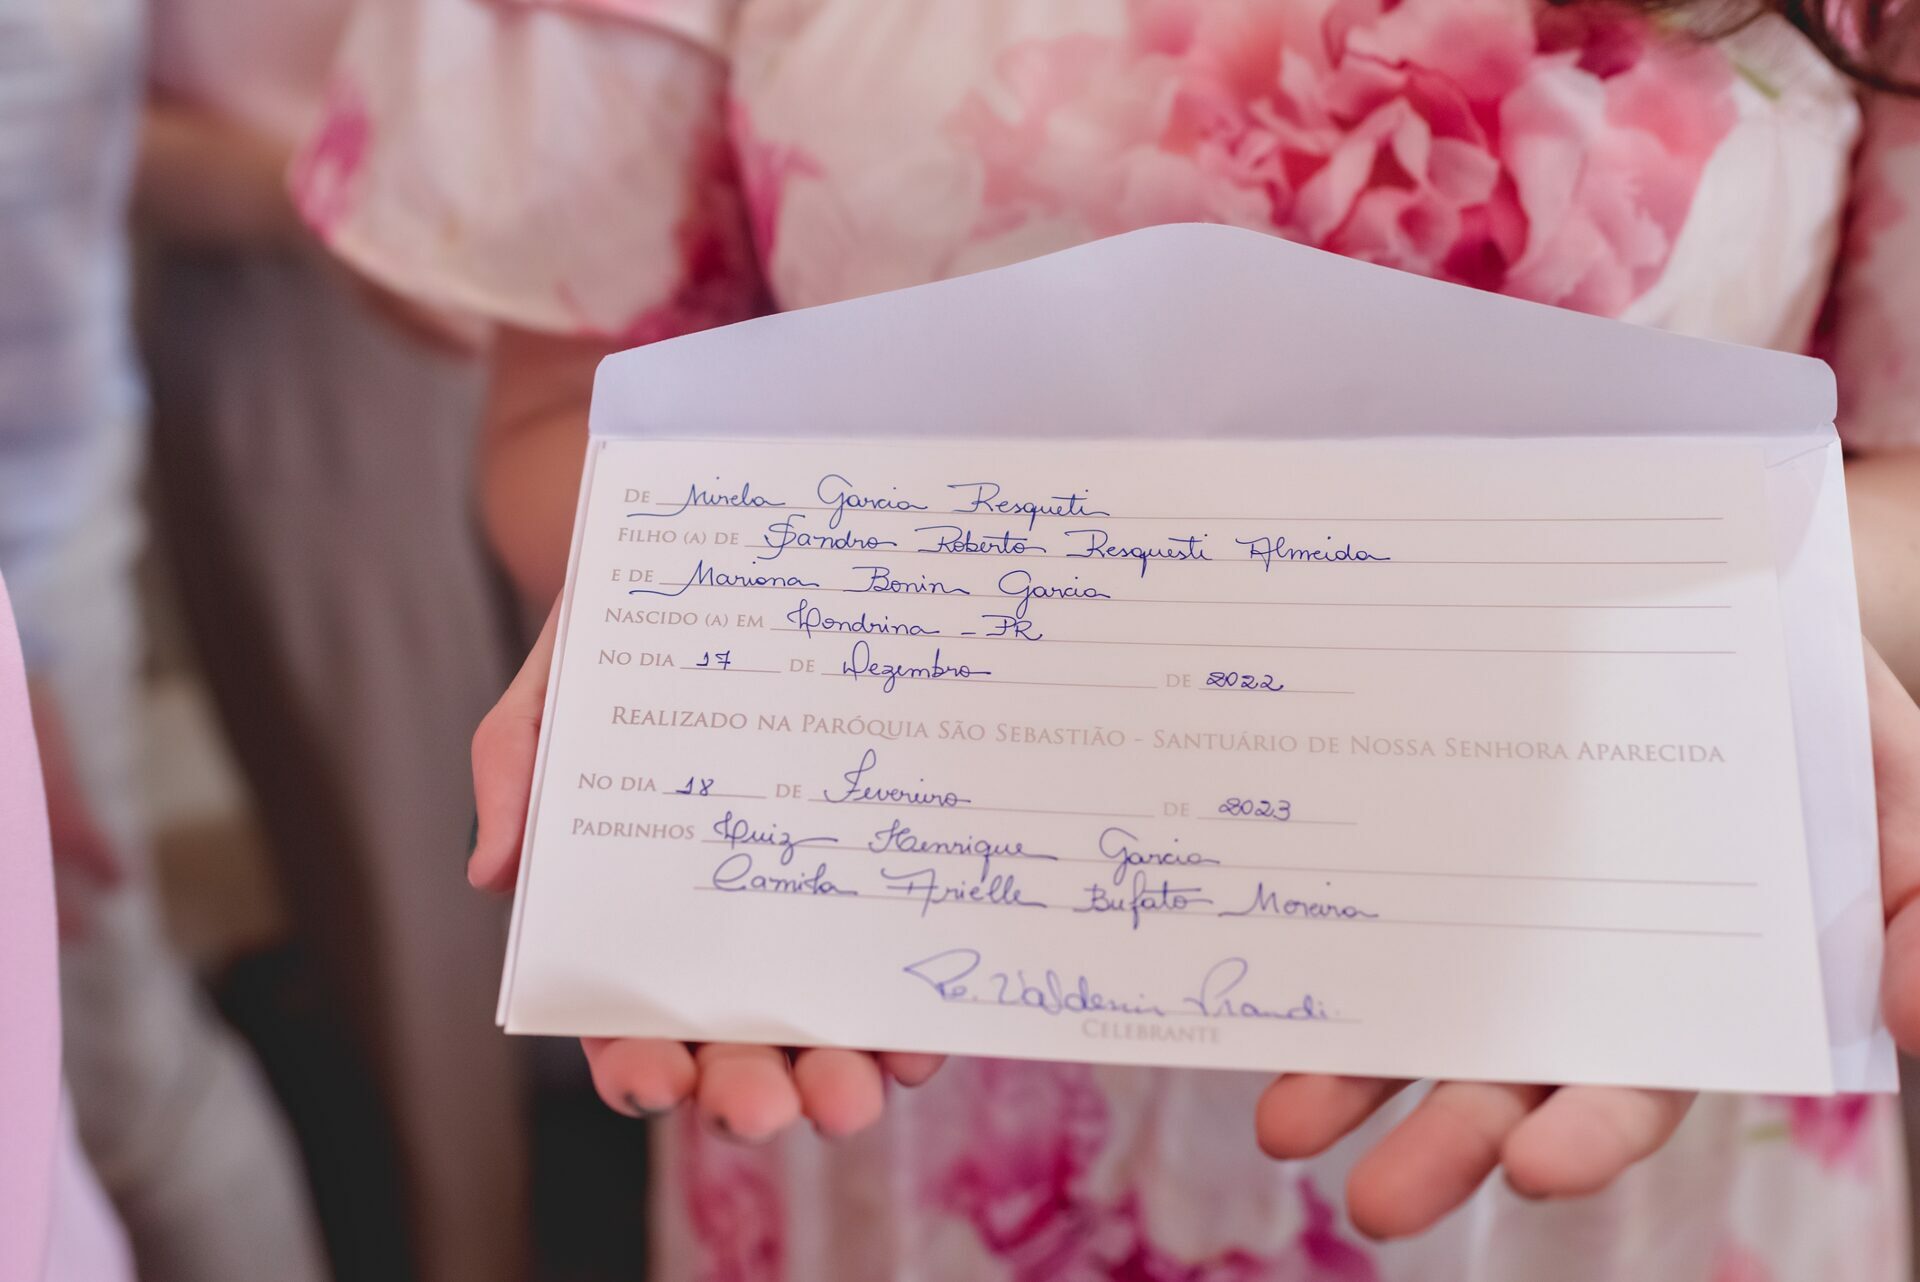 DE Mirela Garcia Resqueti
FILHO (A) DE Sandro Roberto Resquesti Almeida
E DE Mariana Bonin Garcia
NASCIDO (A) EM Londrina - PR
NO DIA 17 DE Dezembro DE 2022
REALIZADO NA PARÓQUIA SÃO SEBASTIÃO - SANTUÁRIO DE NOSSA SENHORA APARECIDA
NO DIA 18 DE Fevereiro DE 2023
PADRINHOS Luiz Henrique Garcia
Camila Arielle Bufato Moreira
Pe. Valdemir Prandi
CELEBRANTE